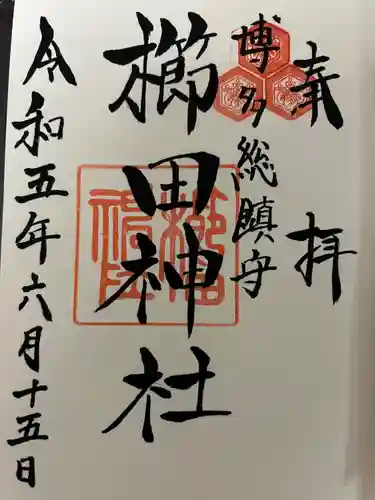 奉拝
博多総鎮守
櫛田神社
令和五年六月十五日